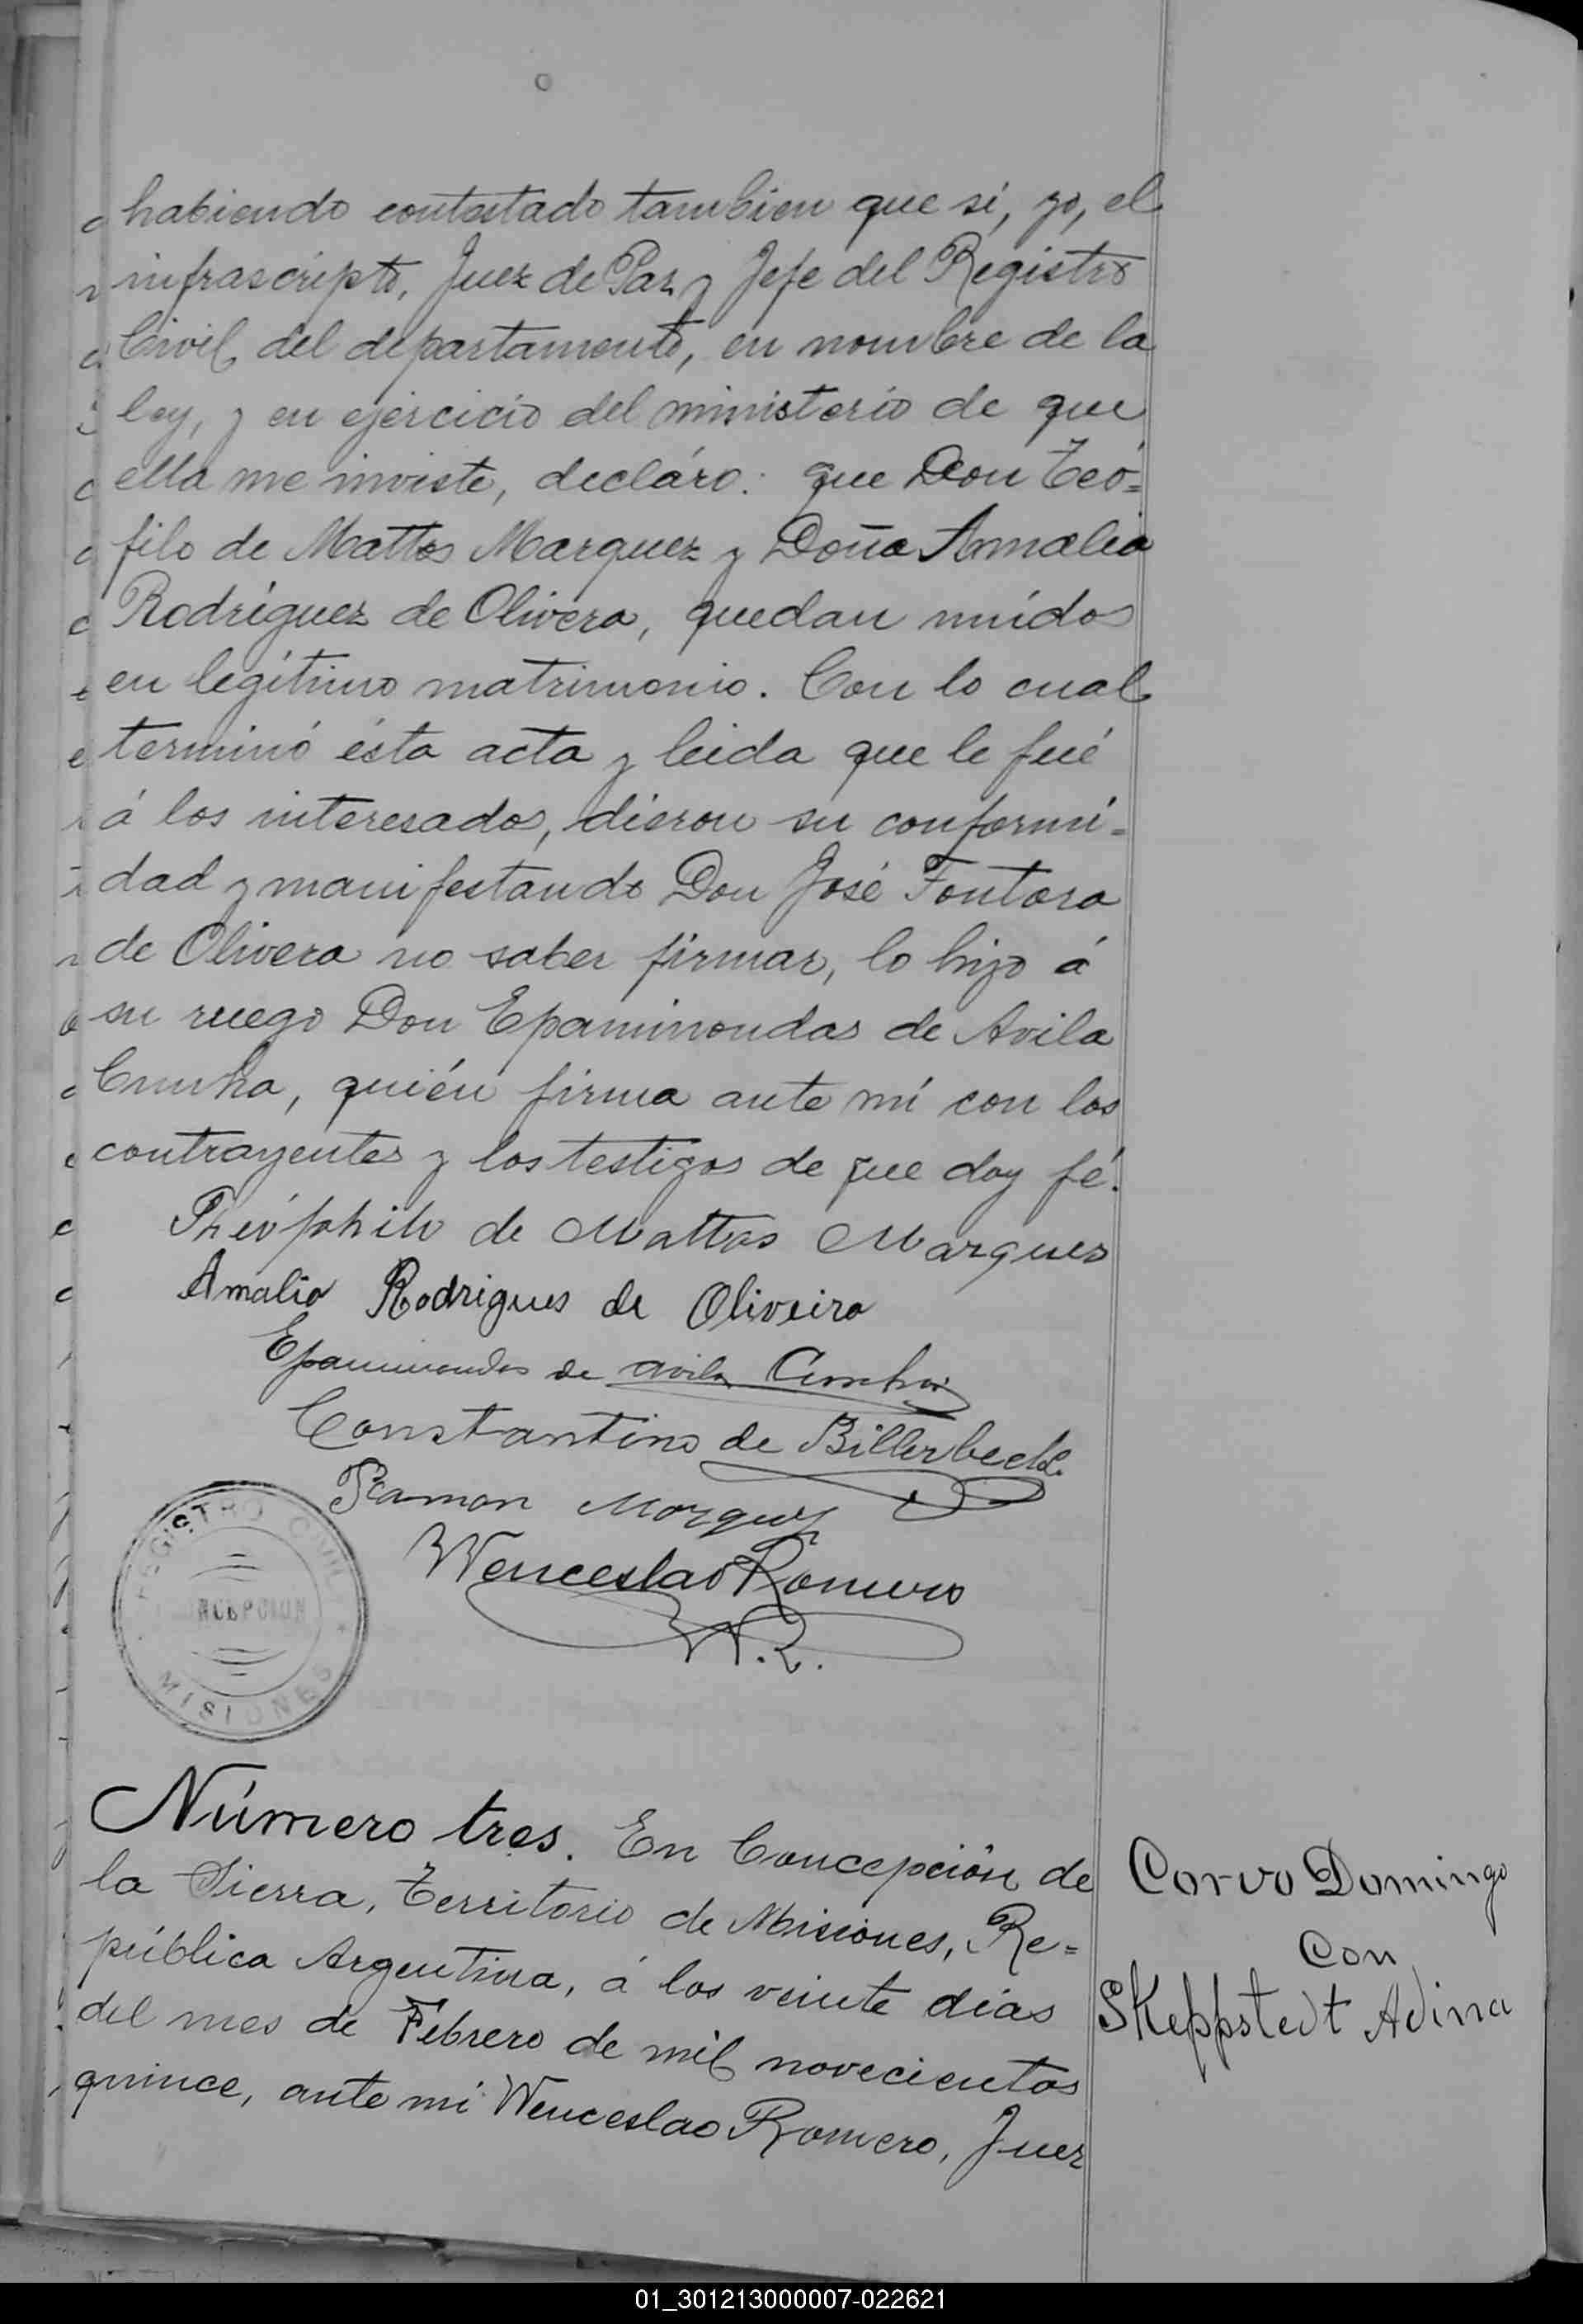 habiendo contestado tambien que sí, yo, el
infrascripto, Juez de Paz y Jefe del Registro
Civil del departamento, en nombre de la
ley, y en ejercicio del ministerio de que
ella me inviste, decláro: que Don Teó=
filo de Mattos Marquez y Doña Amalia
Rodríguez de Olivera, quedan unídos
en legítimo matrimonio. Con lo cual
terminó ésta acta y leida que le fué
á los interesados, dieron su conformi=
dad y manifestando Don José Fontora
de Olivera no saber firmar, lo hizo á
su ruego Don Epaminondas de Avila
Cunha, quién firma ante mí con los
contrayentes y los testigos de que doy fé.
Theóphilo de Mattos Marques
Amalia Rodrigues de Oliveira
Epaminondas de Avila Cunha
Constantino de Billerbeck
Ramon Marquez
Wenceslao Romero
W.R.
REGISTRO CIVIL
CONCEPCION
MISIONES
Número tres. En Concepción de
la Sierra, Territorio de Misiones, Re=
pública Argentina, á los veinte dias
del mes de Febrero de mil novecientos
quince, ante mi Wenceslao Romero, Juez
Corvo Domingo
Con
SKeppstedt Adina
01_301213000007-022621